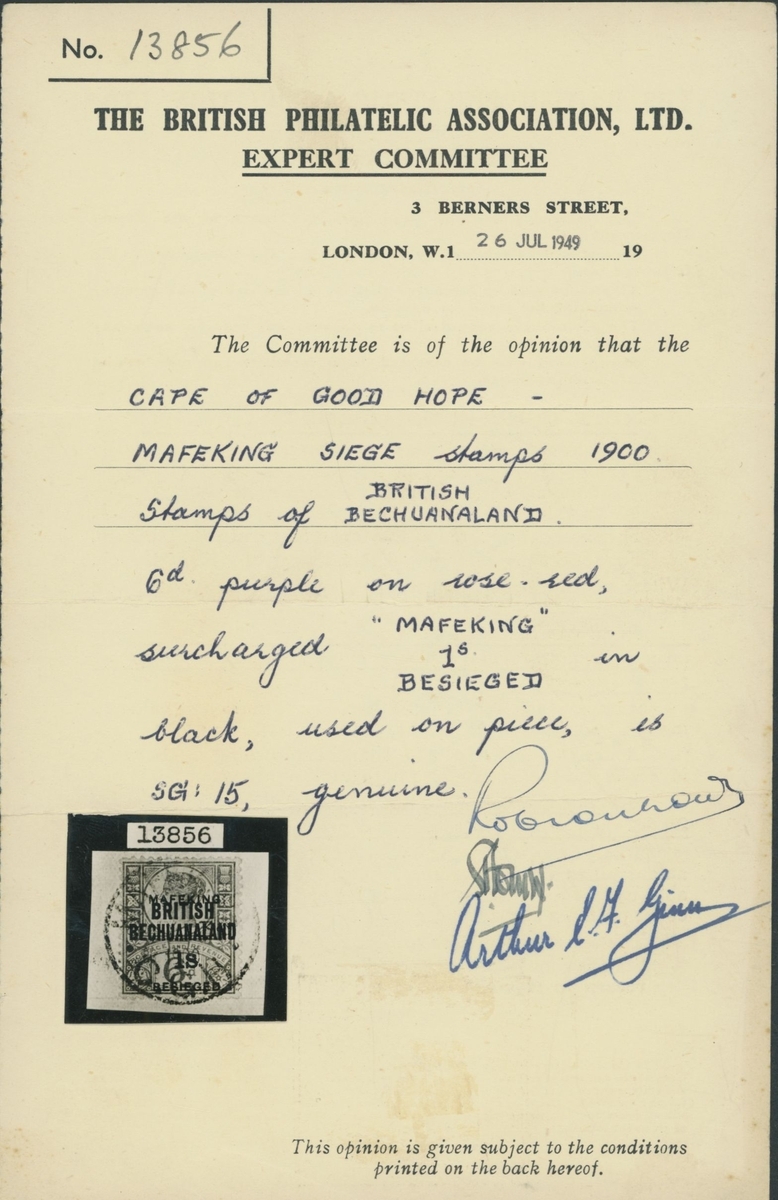 No. 13856
THE BRITISH PHILATELIC ASSOCIATION, LTD.
EXPERT COMMITTEE
3 BERNERS STREET,
LONDON, W.1 26 JUL 1949 19
The Committee is of the opinion that the
CAPE OF GOOD HOPE -
MAFEKING SIEGE stamps 1900.
BRITISH
Stamps of BECHUANALAND.
6d. purple on rose-red,
"MAFEKING"
surcharged 1s. in
BESIEGED
black, used on piece, is
SG: 15, genuine.
13856
MAFEKING
BRITISH
BECHUANALAND
1s.
BESIEGED
Arthur E.F. Ginn
This opinion is given subject to the conditions
printed on the back hereof.